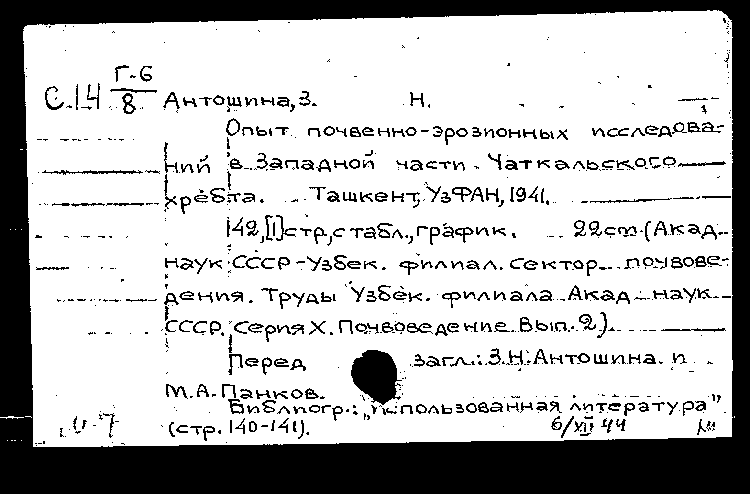 Г-6
С.14 8 Антошина, З. Н.
Опыт почвенно-эрозионных исследова-
ний в Западной части Чаткальского
хребта. Ташкент, УзФАН, 1941.
142,[1]стр,с табл.,график. 22cm.(Акад.
наук СССР-Узбек. филиал. Сектор почвове-
дения. Труды Узбек. филиала Акад. наук
СССР. Серия X. Почвоведение. Вып. 2).
Перед загл.: З.Н. Антошина. и
М.А. Панков.
Библиогр.: „использованная литература"
(стр. 140-141). 6/XII 44